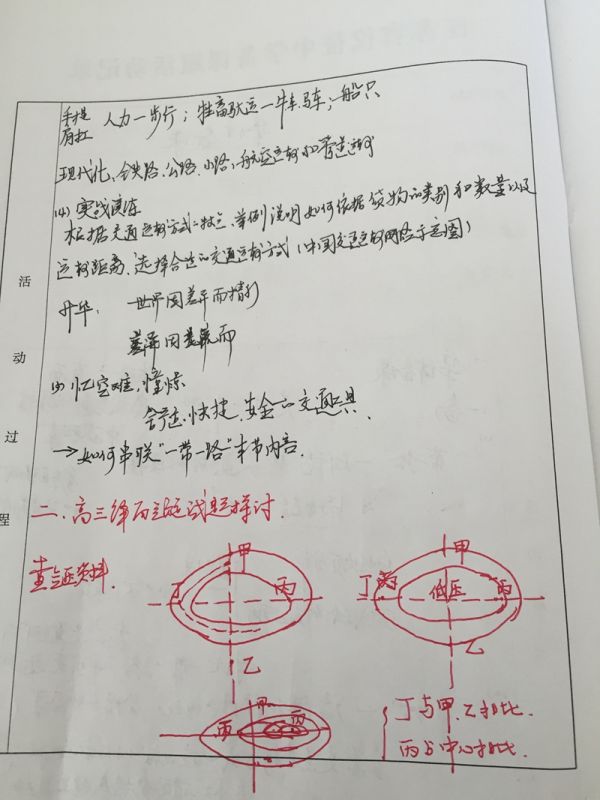 手提
肩扛 人力—步行；牲畜驮运—牛车马车；—船只
现代化，铁路、公路、水路、航空运输和管道运输
(4) 实战演练
根据交通运输方式的特点，举例说明如何依据货物的类别和数量以及
运输距离，选择合适的交通运输方式（中国交通运输网络示意图）
升华： 世界因差异而精彩
差异因 而
(5) 忆空难，憧憬
舒适、快捷、安全的交通工具
→如何串联"一带一路"本节内容.
活
动
过
程
二、高三 试题探讨.
查 资料.
甲
丁 丙
乙
甲
丁 丙 低压 丙
乙
甲
丙 丙
丁与甲、乙相比.
丙与中心相比.